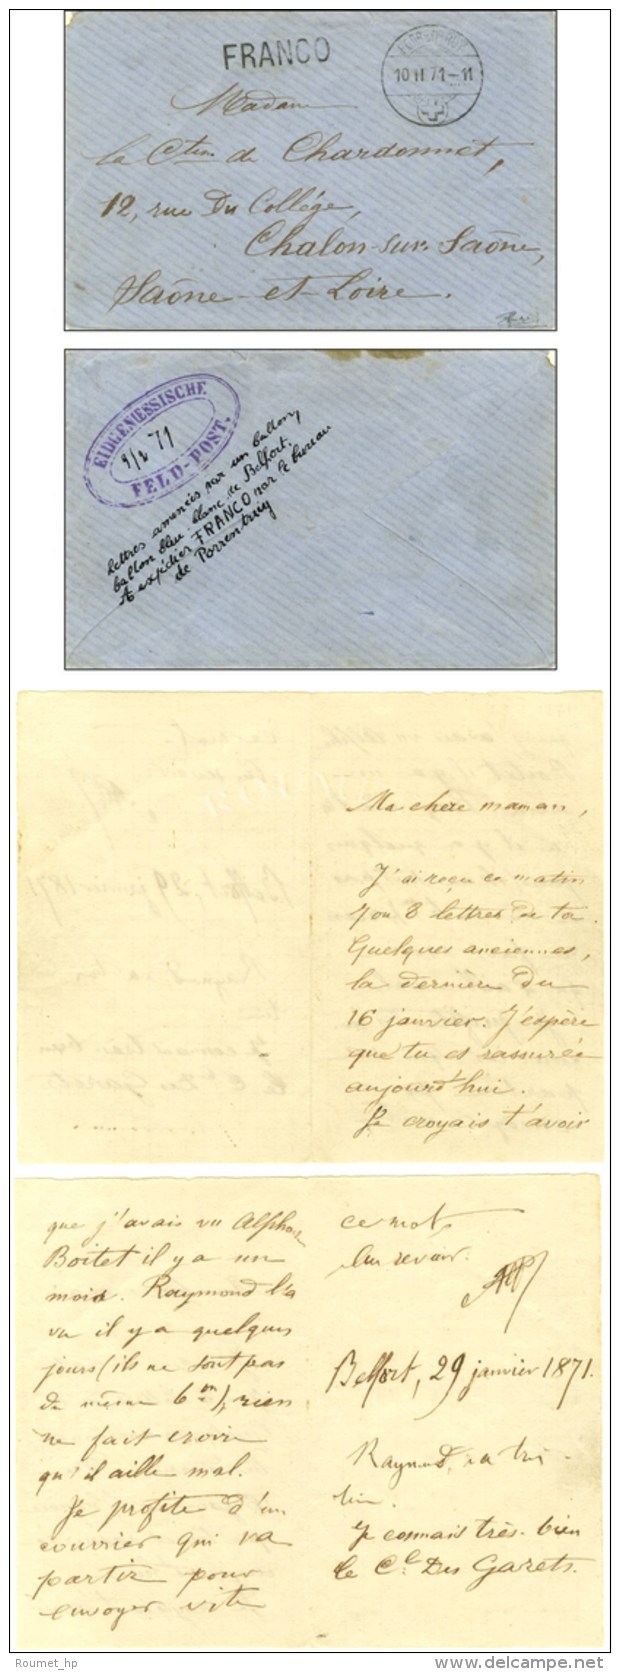 FRANCO
10 II 71-11
Madame
la Ctesse de Chardonnet,
12, rue Du Collége,
Chalon-sur-Saône,
Saône-et-Loire.
EIDGENŒSSISCHE
9/2 71
FELD-POST.
lettres amenées par un ballon,
ballon bleu-blanc de Belfort.
A expédier FRANCO par le bureau
de Porrentruy
Ma chère maman,
J'ai reçu ce matin
7 ou 8 lettres de toi.
Quelques anciennes,
la dernière du
16 janvier. J'espère
que tu es rassurée
aujourd'hui.
Je croyais t'avoir
que j'avais vu Alphonse
Boitet il y a un
mois. Raymond l'a
vu il y a quelques
jours (ils ne sont pas
du même bon), rien
ne fait croire
qu'il aille mal.
Je profite d'un
courrier qui va
partir pour
envoyer vite
ce mot.
Au revoir.
Belfort, 29 janvier 1871.
Raymond va très
bien.
Je connais très-bien
le Cel Des Garets.
Roumet_hp
delcampe.net